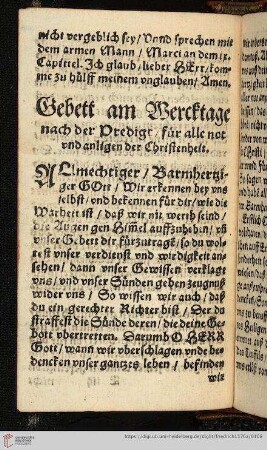 nicht vergeblich sey / Vnnd sprechen mit
dem armen Mann / Marci an dem ix.
Capittel. Ich glaub / lieber HErr / kom-
me zu hülff meinem vnglauben / Amen.
Gebett am Wercktage
nach der Predigt / für alle not
vnd anligen der Christenheit.
ALlmechtiger / Barmhertzi-
ger GOtt / Wir erkennen bey vns
selbst / vnd bekennen für dir / wie die
Warheit ist / daß wir nit werth seind /
die Augen gen Himel auffzuhebn / vñ
vnser Gebett dir fürzutragẽ / so du wol-
lest vnser verdienst vnd wirdigkeit an-
sehen / dann vnser Gewissen verklagt
vns / vnd vnser Sünden geben zeugnuß
wider vns / So wissen wir auch / daß
du ein gerechter Richter bist / Der du
straffest die Sünde deren / die deine Ge-
bott vbertretten. Darumb O HERR
Gott / wann wir vberschlagen vnd be-
dencken vnser gantzes leben / befinden
wir